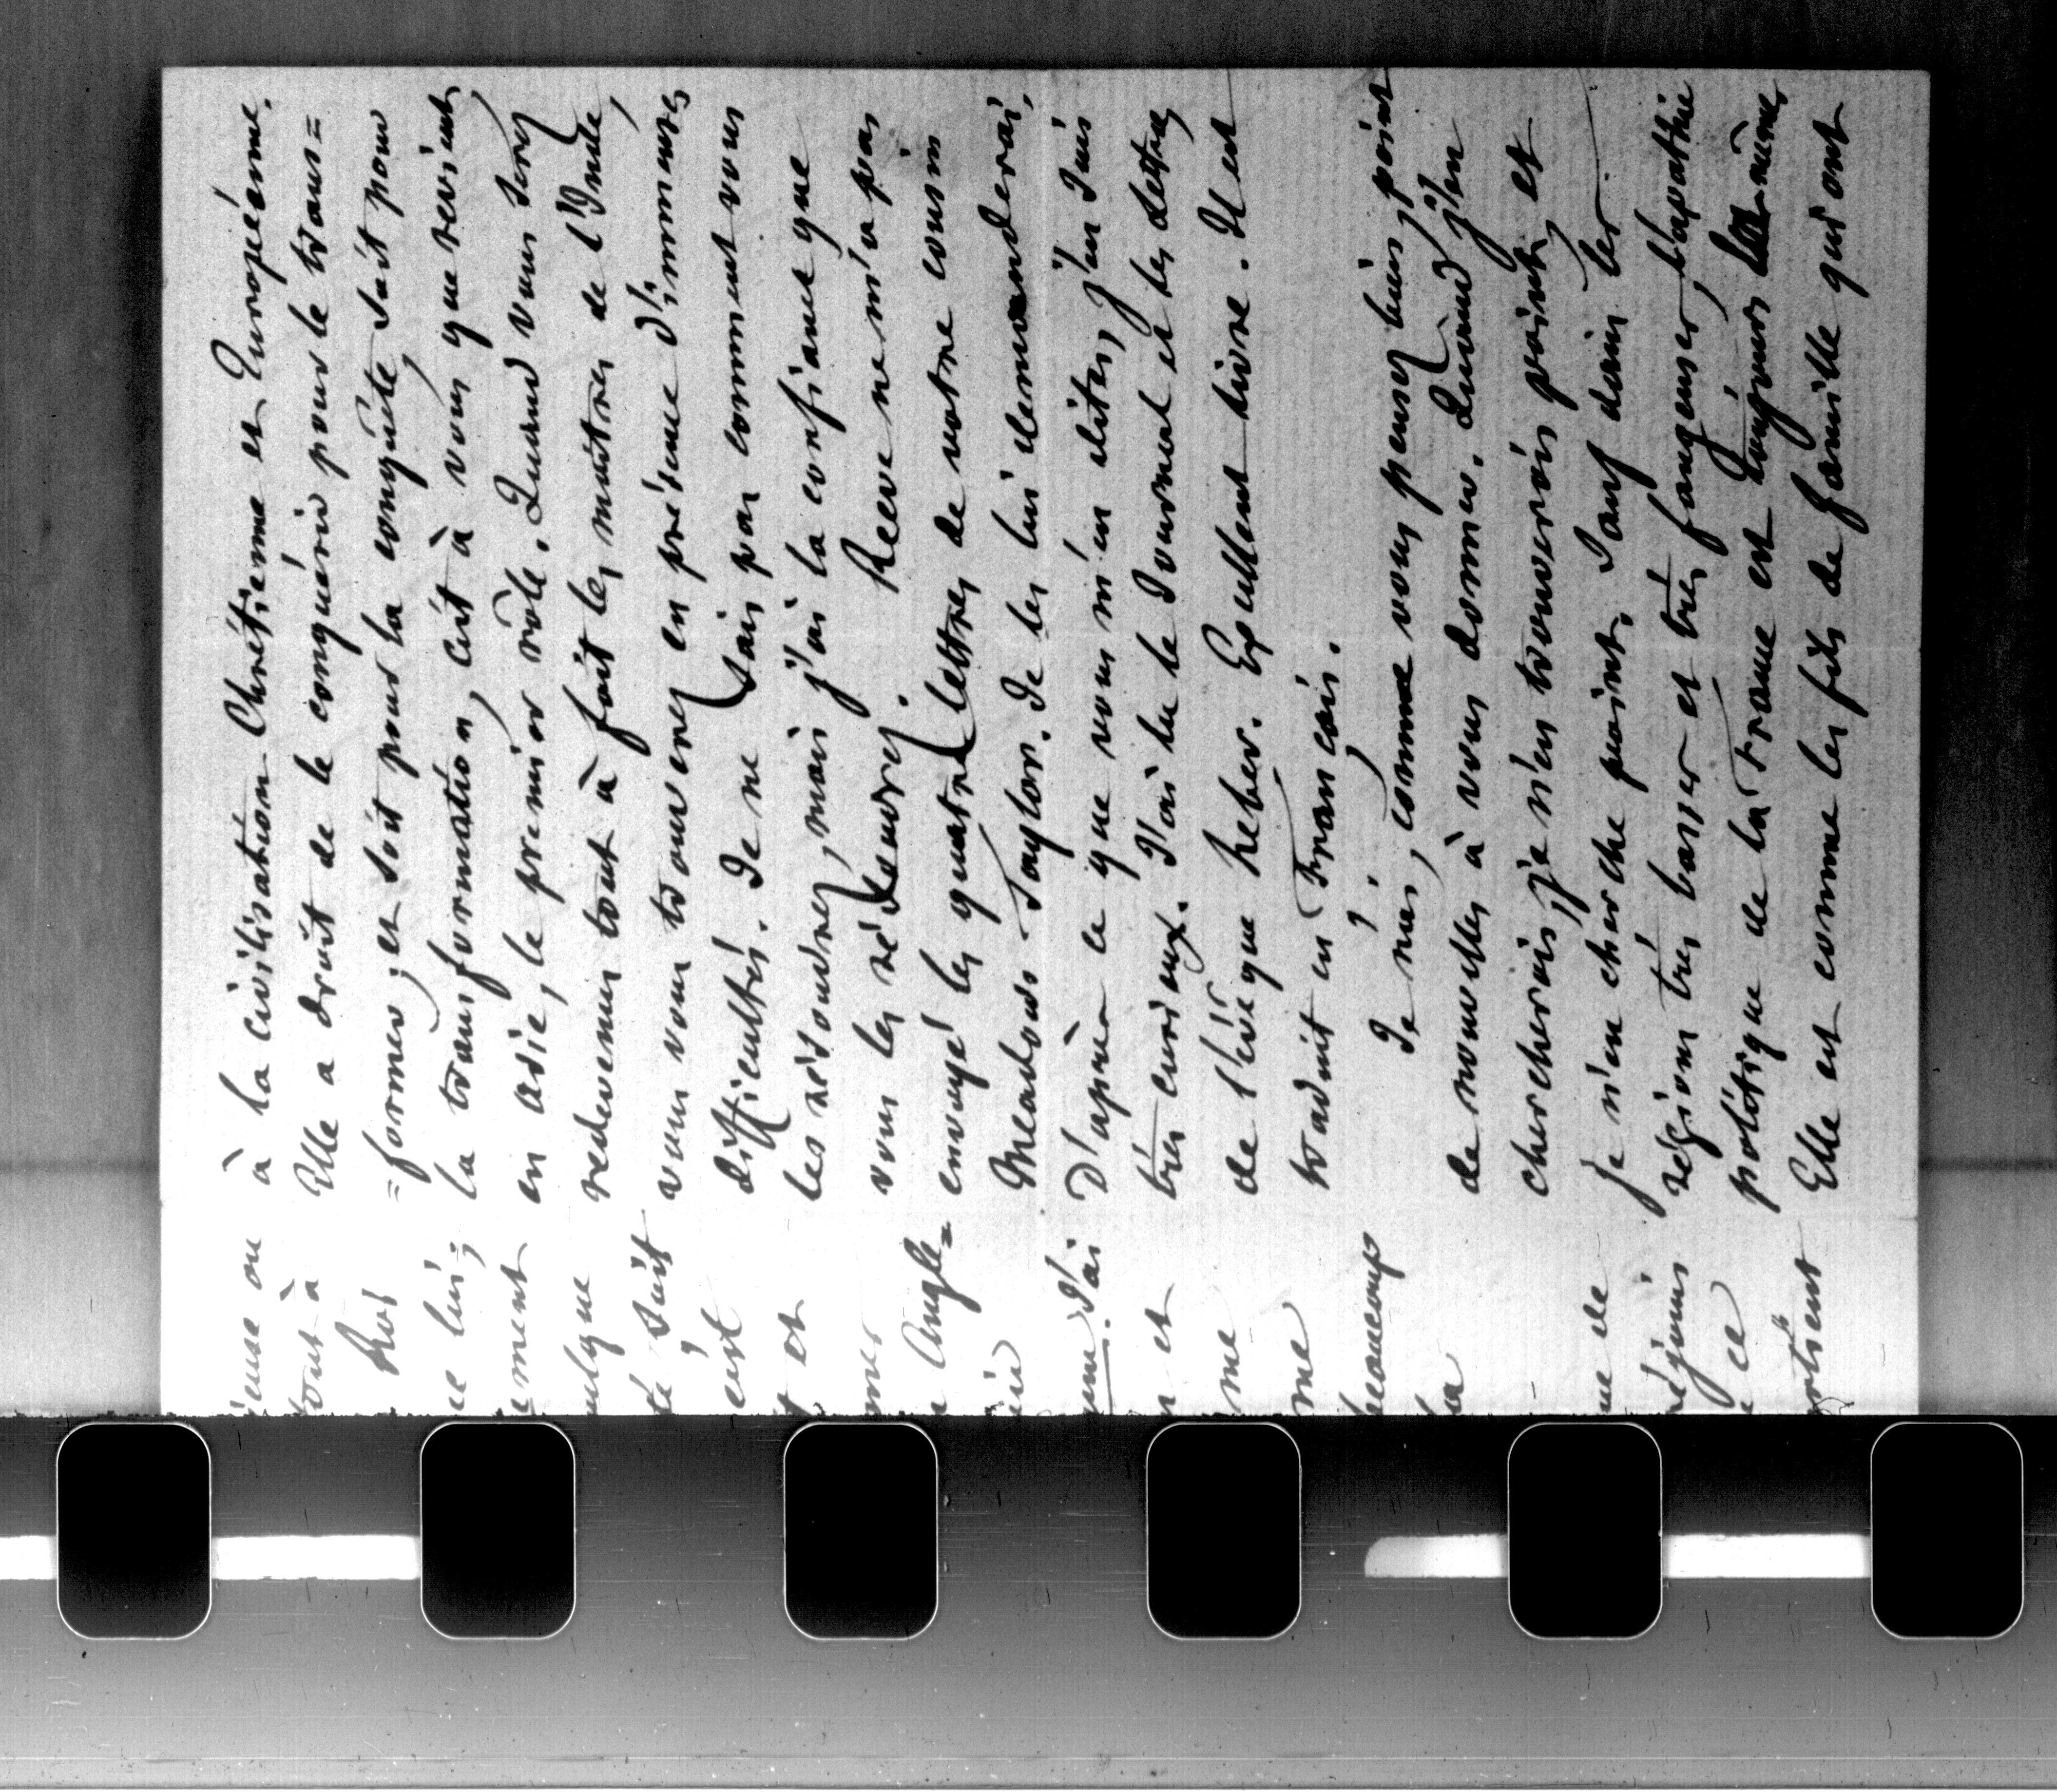 à la civilisation Chrétienne et Européenne.
Elle a droit de le conquérir pour le trans=
=former, et soit pour la conquête, soit pour
la transformation, c'est à vous que revient,
en Asie, le premier rôle. Quand vous serez
redevenus tout à fait les maitres de l'Inde,
vous vous trouverez en présence d'immenses
difficultés. Je ne sais pas comment vous
les résoudrez, mais j'ai la confiance que
vous les résoudrez.
Reeve ne m'a pas
envoyé les quatre lettres de votre cousin
Meadows Taylor. Je les lui demanderai,
D'après ce que vous m'en dites, j'en suis
très curieux. J'ai lu le Journal et les lettres
de l'évêque heber. Excellent livre. Il est
traduit en Français.
Je n'ai, comme vous pensez bien, point
de nouvelles à vous donner. Quand j'en
chercherais, je n'en trouverais point, et
je n'en cherche point. Sauf dans les
régions très basses et très fangeuses, l'apathie
politique de la France est toujours la même,
Elle est comme les fils de famille qui ont
ieuse ou
tout à
Roi
ce lui;
ement
ulque
té suit
c'est
et
mer
Angle=
une. J'ai
n et
me
me
beaucoup
la
ue de
réjouis
ce
ortient